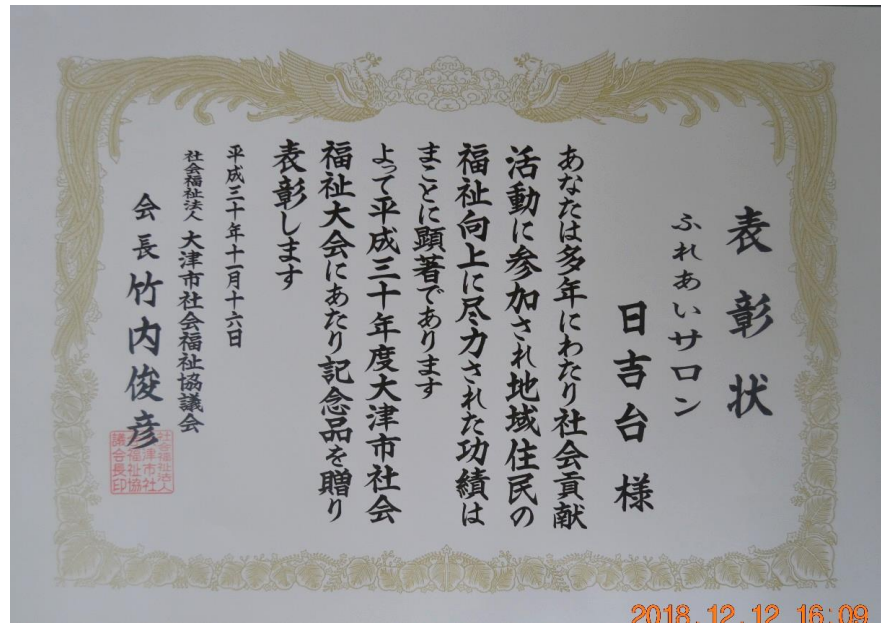 表彰状
ふれあいサロン
日吉台 様
あなたは多年にわたり社会貢献
活動に参加され地域住民の
福祉向上に尽力された功績は
まことに顕著であります
よって平成三十年度大津市社会
福祉大会にあたり記念品を贈り
表彰します
平成三十年十一月十六日
社会福祉法人 大津市社会福祉協議会
会長 竹内俊彦
社会福祉法人
大津市社
会福祉協
議会長印
2018.12.12 16:09